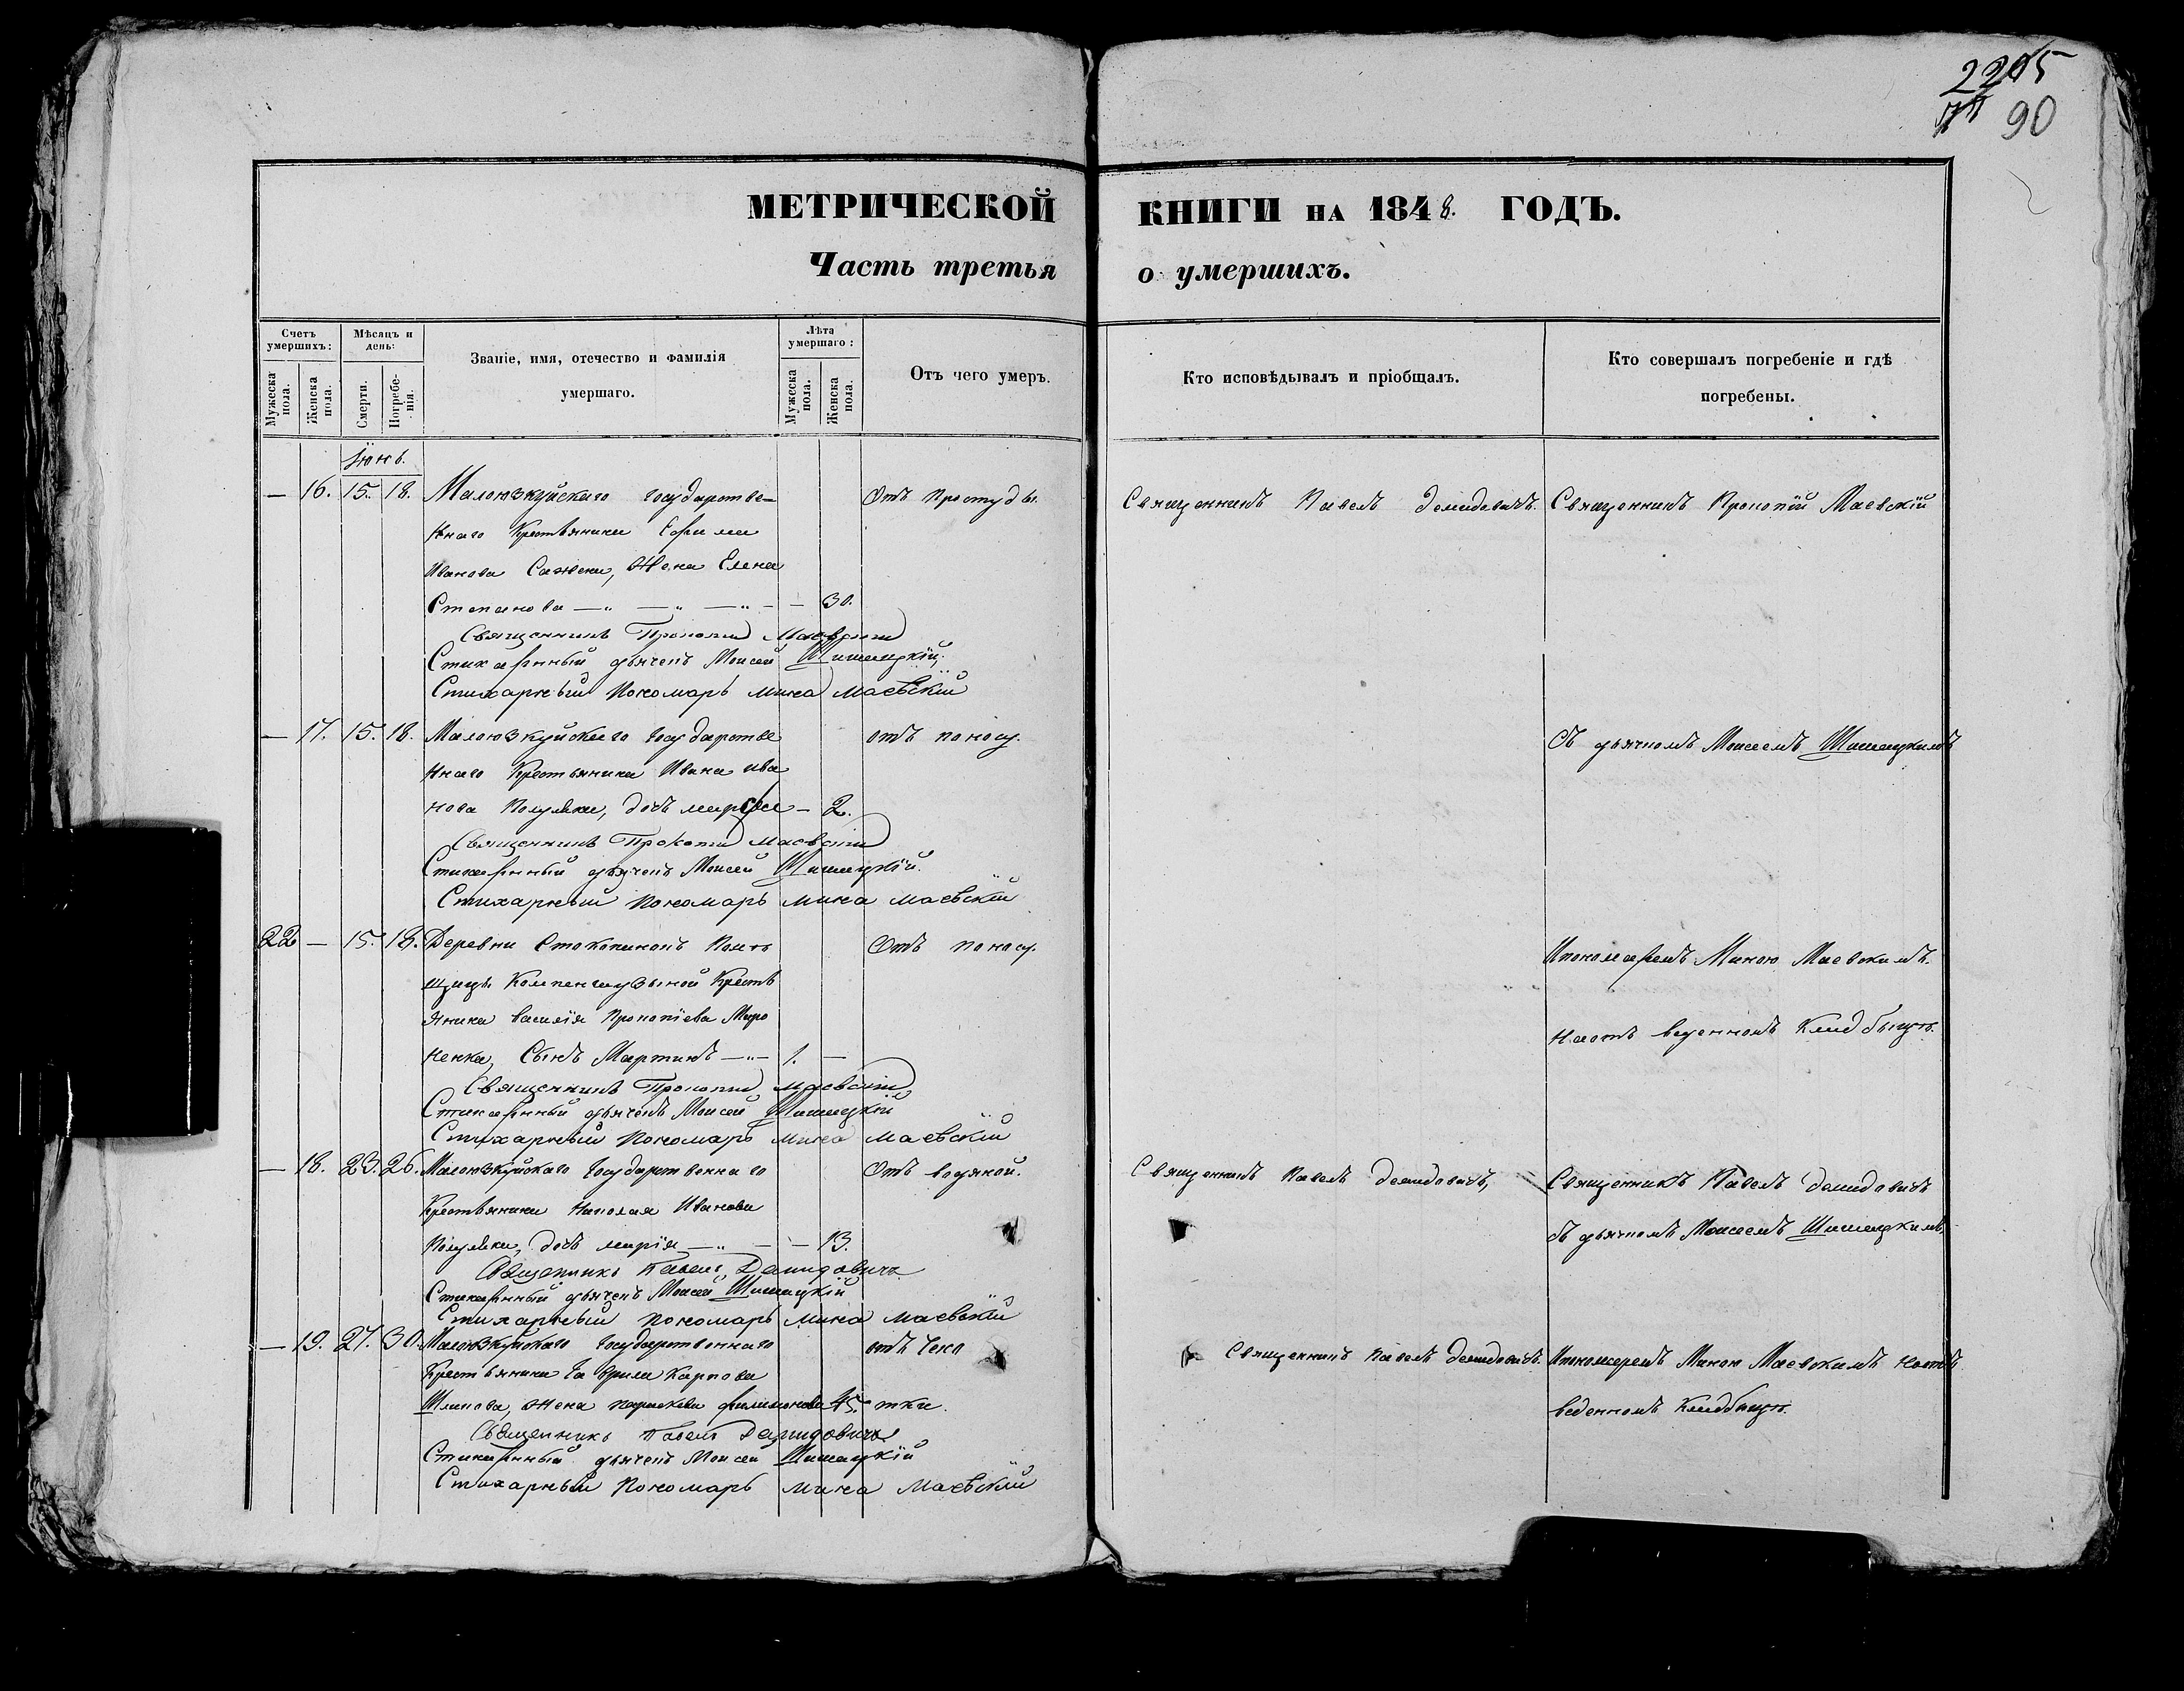 2205
90
МЕТРИЧЕСКОЙ КНИГИ НА 1848. ГОДЪ.
Часть третья о умершихъ.
Счетъ умершихъ:
Мужеска пола.
Женска пола.
Мѣсяцъ и день:
Смерти.
Погребенія.
Званіе, имя, отечество и фамилія
умершаго.
Лѣта умершаго:
Мужеска пола.
Женска пола.
Отъ чего умеръ.
Кто исповѣдывалъ и пріобщалъ.
Кто совершалъ погребеніе и гдѣ
погребены.
Іюнь.
— 16. 15. 18. Малоюзкуйскаго государстве- Отъ простуды. Священникъ Павелъ Демидовичъ. Священникъ Прокопій Маевскій
ннаго Крестьянина Ефима
Иванова Сажена, Жена Елена
Степанова — „ — „ — „ - — 30.
Священникъ Прокопій Маевскій
Стихарный дьячекъ Моисей Шишацкій.
Стихарный Пономарь Мина Маевскій
— 17. 15. 18. Малоюзкуйскаго государстве отъ поносу. Съ дьячкомъ Моисеемъ Шишацкимъ
ннаго Крестьянина Ивана Ива
нова дочь — 2.
Священникъ Прокопій Маевскій
Стихарный дьячекъ Моисей Шишацкій.
Стихарный Пономарь Мина Маевскій
22 — 15. 18. Деревни Помѣ Отъ поносу. Ипономаремъ Миною Маевскимъ.
щицы Крестъ
янина Василія Прокопіева Миро наотъ веденномъ Кладбищѣ.
ненка, Сынъ Мартинъ — „ — 1. —
Священникъ Прокопій Маевскій
Стихарный дьячекъ Моисей Шишацкій
Стихарный Пономарь Мина Маевскій
— 18. 23. 26. Малоюзкуйскаго Государственнаго Отъ водяной. Священникъ Павелъ Демидовичъ, Священникъ Павелъ Демидовичъ
Крестьянина Николая Иванова
дочь Марія — „ — — 13. съ дьячкомъ Моисеемъ Шишацкимъ,
Священникъ Павелъ Демидовичъ
Стихарный дьячекъ Моисей Шишацкій
Стихарный Пономарь Мина Маевскій
— 19. 27. 30. Малоюзкуйскаго Государственнаго отъ чехо Священникъ Павелъ Демидовичъ. Ипономаремъ Миною Маевскимъ наотъ
Крестьянина Гаврила Карпова
Шлипова, Жена Параскева Филимонова 45. тки. веденномъ Кладбищѣ.
Священникъ Павелъ Демидовичъ
Стихарный дьячекъ Моисей Шишацкій
Стихарный Пономарь Мина Маевскій